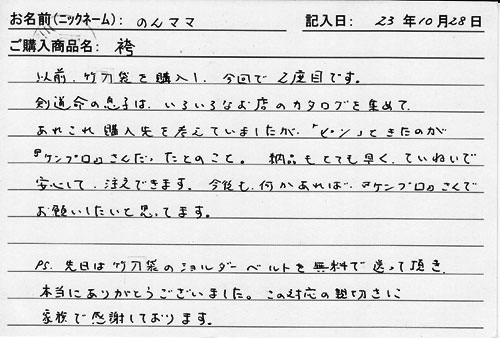 お名前(ニックネーム): のんママ 記入日: 23年10月28日
ご購入商品名: 袴
以前、竹刀袋を購入し、今回で2度目です。
剣道命の息子は、いろいろなお店のカタログを集めて、
あれこれ購入先を考えていましたが、「ピン」ときたのが
『ケンプロ』さんだったとのこと。 納品もとても早く、ていねいで
安心して、注文できます。 今後も、何かあれば、『ケンプロ』さんで
お願いしたいと思ってます。
PS. 先日は竹刀袋のショルダーベルトを無料で送って頂き、
本当にありがとうございました。この対応の親切さに
家族で感謝しております。